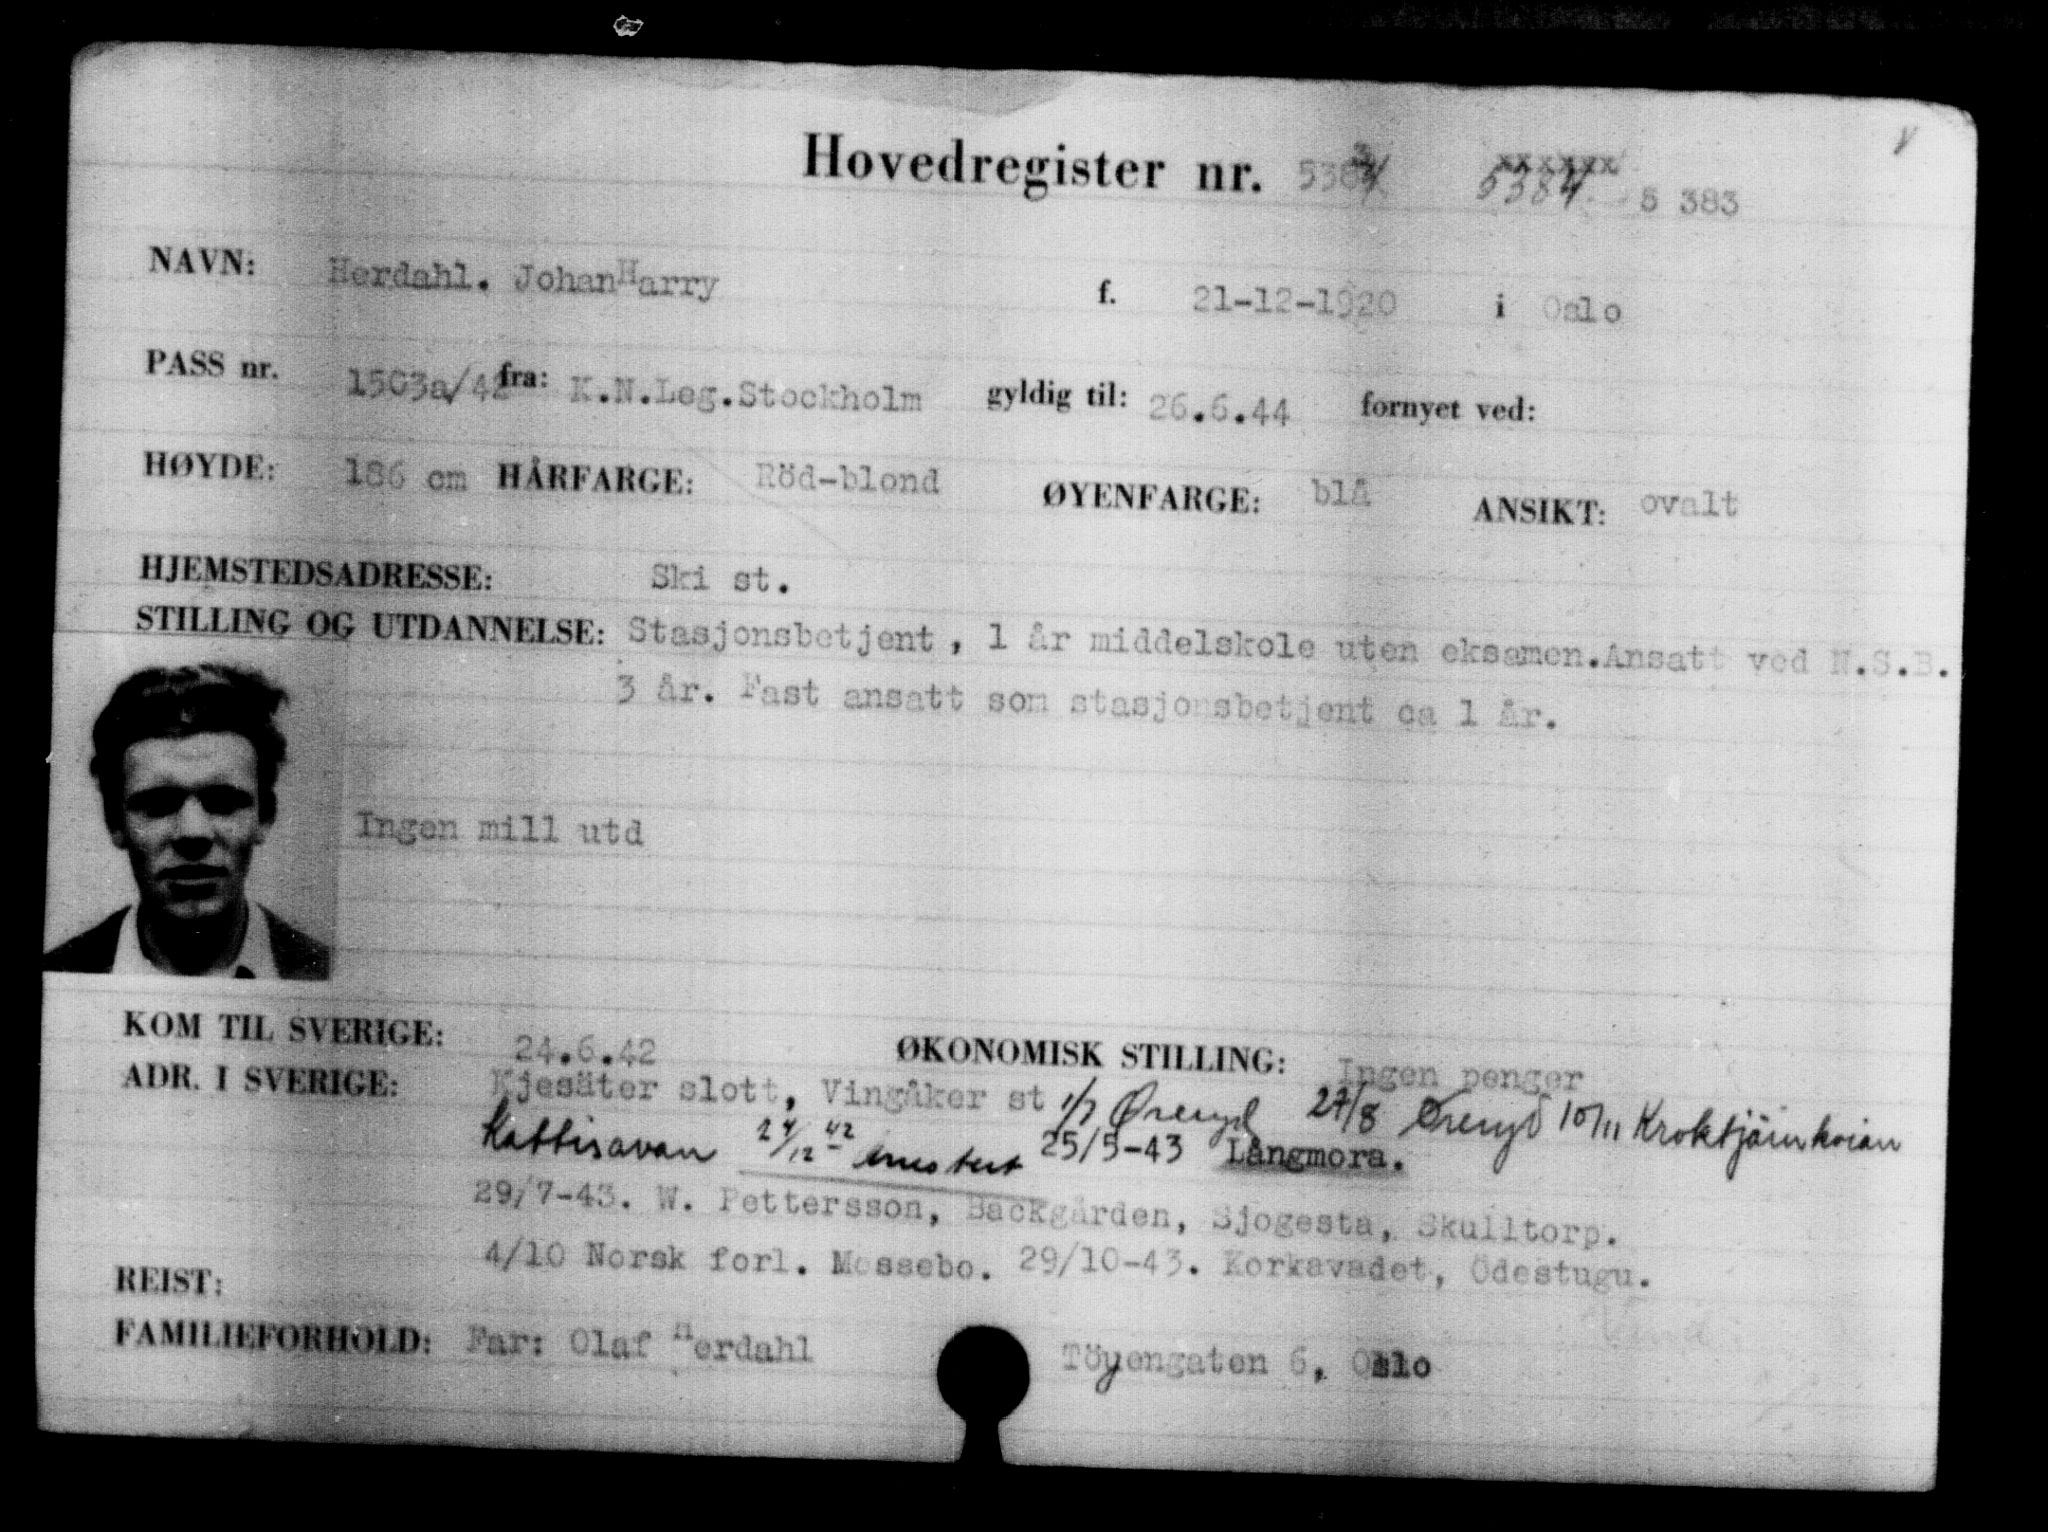 Hovedregister nr. 5383 5384 5 383
NAVN: Herdahl. Johan Harry f. 21-12-1920 i Oslo
PASS nr. 1503a/42 fra: K.N.Leg.Stockholm gyldig til: 26.6.44 fornyet ved:
HØYDE: 186 cm HÅRFARGE: Röd-blond ØYENFARGE: blå ANSIKT: ovalt
HJEMSTEDSADRESSE: Ski st.
STILLING OG UTDANNELSE: Stasjonsbetjent, 1 år middelskole uten eksamen.Ansatt ved N.S.B.
3 år. Fast ansatt som stasjonsbetjent ca 1 år.
Ingen mill utd
KOM TIL SVERIGE: 24.6.42 ØKONOMISK STILLING: Ingen penger
ADR. I SVERIGE: Kjesäter slott, Vingåker st 1/7 Öreryd 27/8 Öreryd 10/11 Kroktjärnkoian
Kattisavan 24/12 42 25/5-43 Långmora.
29/7-43. W. Pettersson, Backgården, Sjogesta, Skulltorp.
4/10 Norsk forl. Mossebo. 29/10-43. Korkavadet, Ödestugu.
REIST:
FAMILIEFORHOLD: Far: Olaf Herdahl Töyengaten 6, Oslo